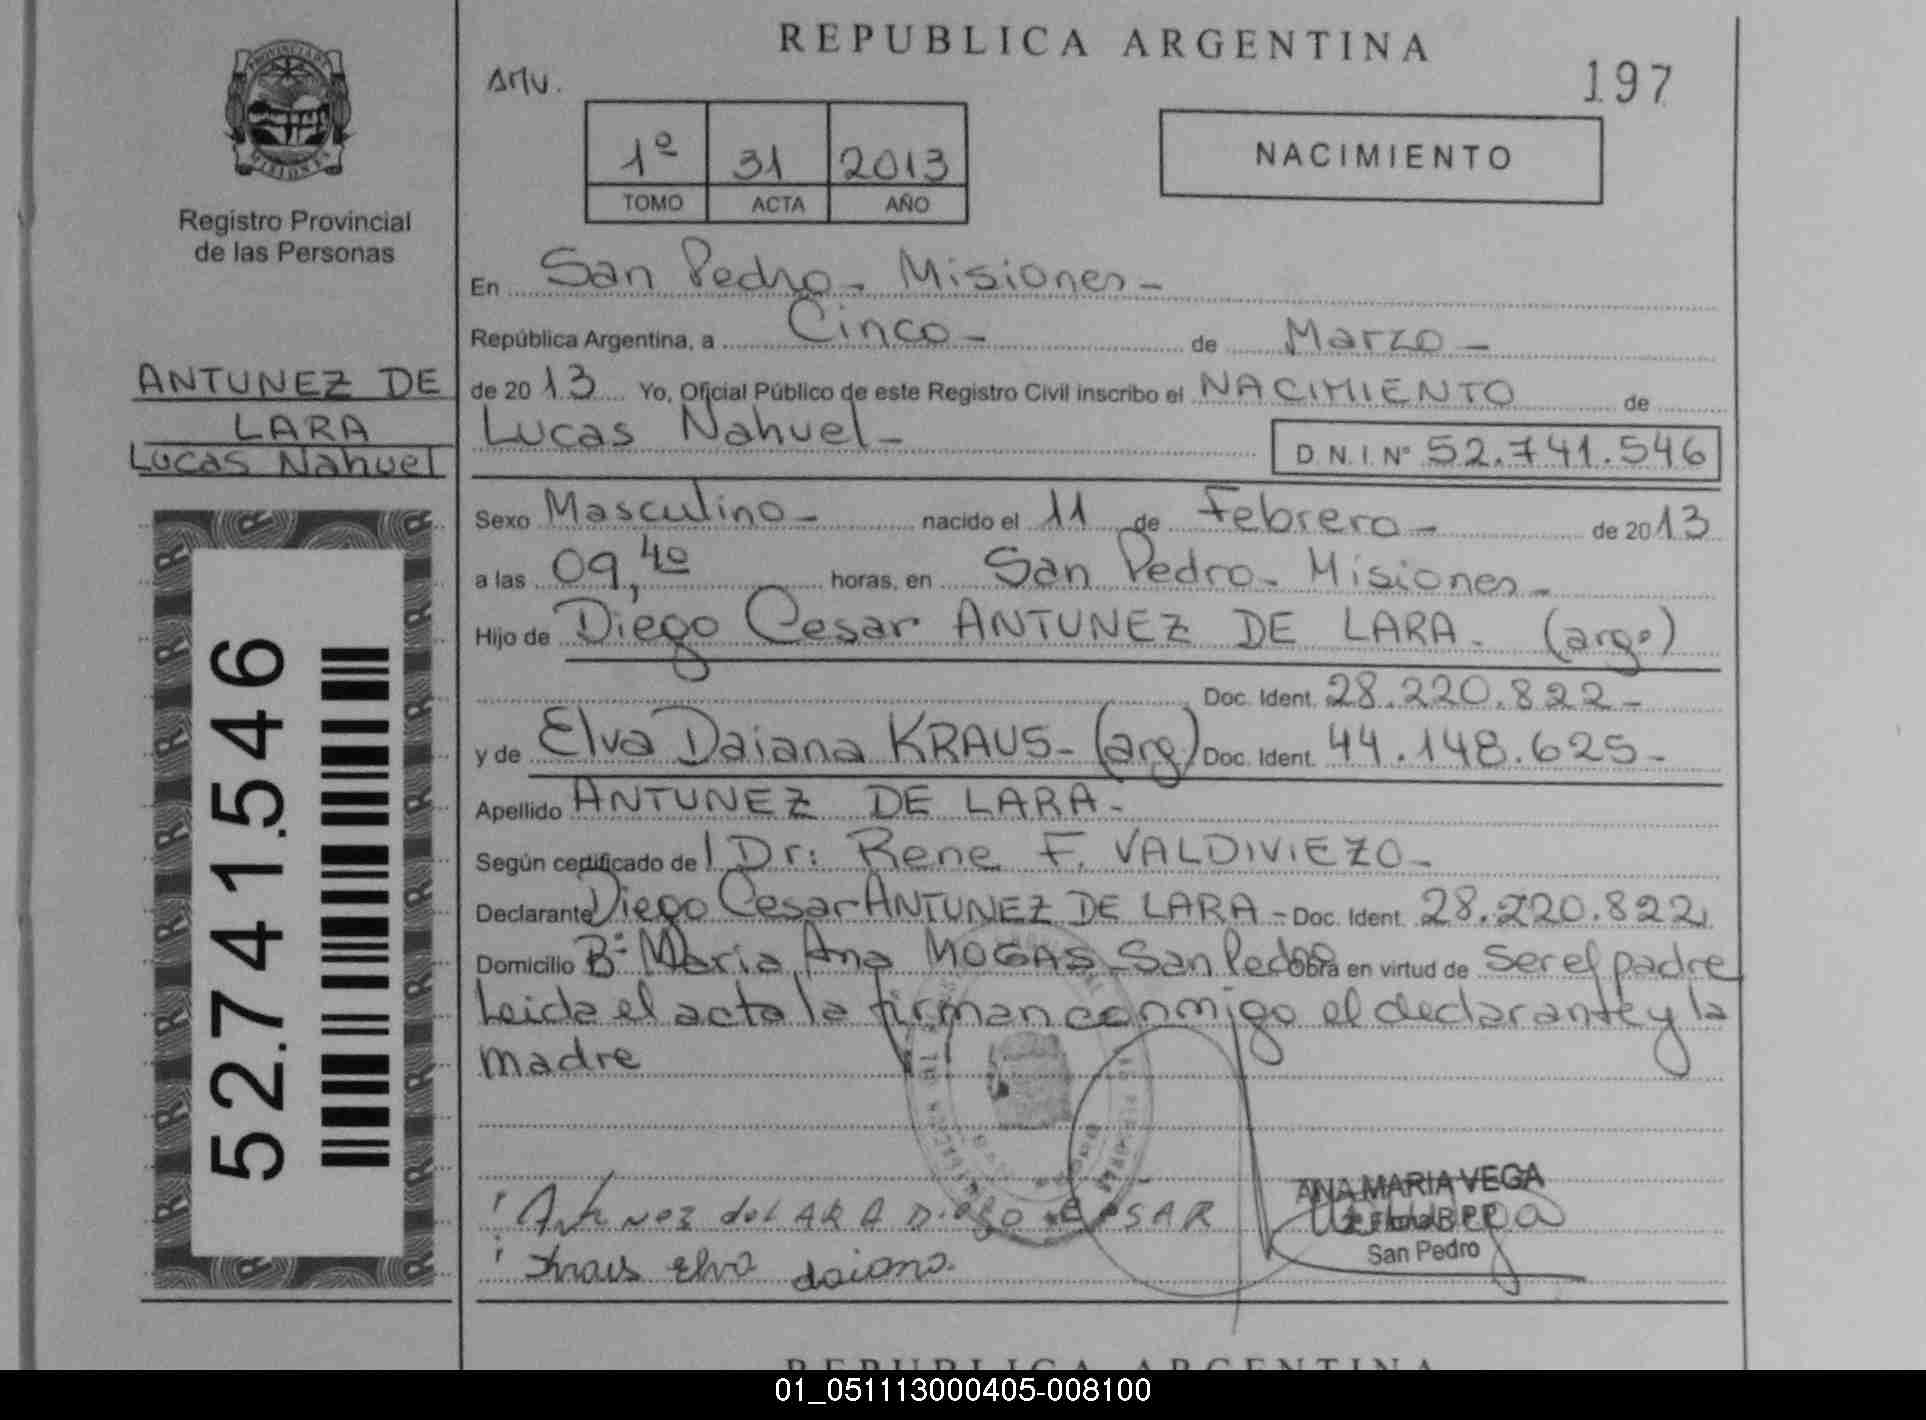 REPUBLICA ARGENTINA
197
PROVINCIA DE
MISIONES
Registro Provincial
de las Personas
1º 31 2013
TOMO ACTA AÑO
NACIMIENTO
En San Pedro - Misiones -
República Argentina, a Cinco - de Marzo -
ANTUNEZ DE
LARA
Lucas Nahuel
de 2013 Yo, Oficial Público de este Registro Civil inscribo el NACIMIENTO de
Lucas Nahuel - D.N.I. Nº 52.741.546
Sexo Masculino - nacido el 11 de Febrero - de 2013
a las 09,40 horas, en San Pedro - Misiones -
Hijo de Diego Cesar ANTUNEZ DE LARA - (argo)
Doc. Ident. 28.220.822 -
y de Elva Daiana KRAUS - (arg) Doc. Ident. 44.148.625 -
Apellido ANTUNEZ DE LARA -
Según certificado del Dr: Rene F. VALDIVIEZO -
Declarante Diego Cesar ANTUNEZ DE LARA - Doc. Ident. 28.220.822
Domicilio Bº Maria Ana MOGAS San Pedro Obra en virtud de ser el padre
Leida el acta la firman conmigo el declarante y la
madre
52.741.546
Antunez de LARA Diego CESAR
Kraus elva daiana
ANA MARIA VEGA
San Pedro
REPUBLICA ARGENTINA
01_051113000405-008100